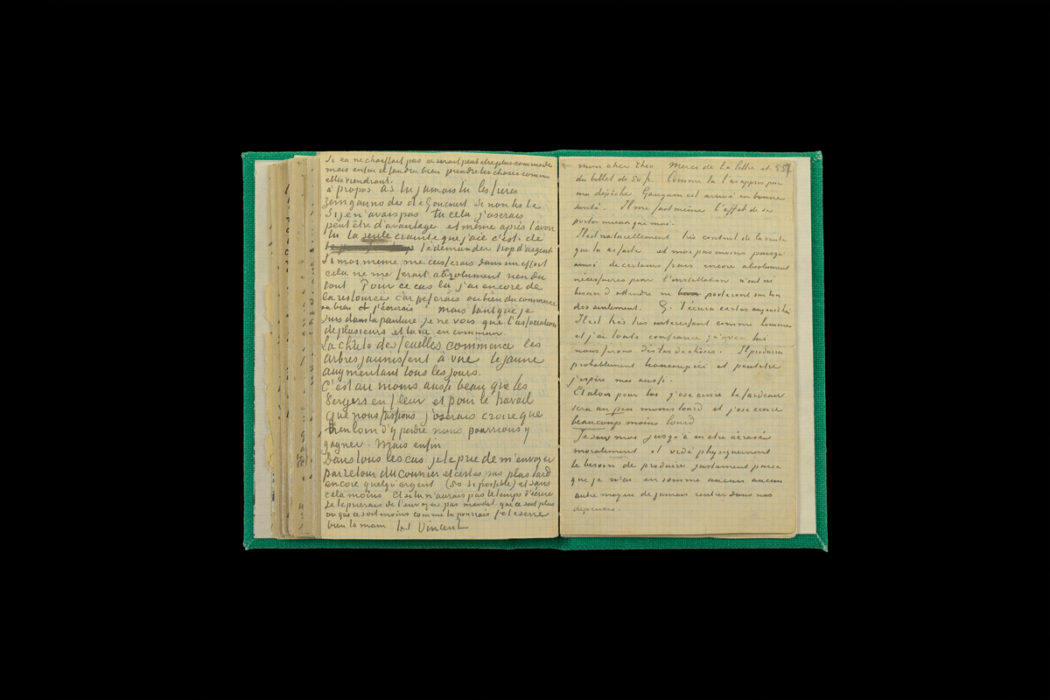 Si ça ne chauffait pas ce serait peut être plus commode
mais enfin il faudra bien prendre les choses comme
elles viendront.
à propos As tu jamais lu les freres
Zemganno des de Goncourt Si non lis le
Si j'en n'avais pas lu cela j'oserais
peut être d'avantage et même après l'avoir
lu la seule crainte que j'aie c'est de
te demander trop d'argent
Si moi meme me casserais dans un effort
cela ne me ferait absolument rien du
tout Pour ce cas là j'ai encore de
la ressource car je ferais ou bien du commerce
ou bien j'écrirais mais tant que je
suis dans la peinture je ne vois que l'association
de plusieurs et la vie en commun
La chute des feuilles commence les
arbres jaunissent à vue le jaune
augmentant tous les jours.
C'est au moins aussi beau que les
Vergers en fleur et pour le travail
que nous fassions j'oserais croire que
bien loin d'y perdre nous pourrions y
gagner. Mais enfin
Dans tous les cas je te prie de m'envoyer
par retour du Courrier et certes pas plus tard
encore quelqu'argent (50 si possible) et sans
cela moins. Et si tu n'aurais pas le temps d'écrire
je te prierais de l'envoyer par mandat que ce soit plus
ou que ce soit moins comme tu pourrais je te serre
bien la main t. à t. Vincent
mon cher Theo Merci de ta lettre et 557
du billet de 50 fr. Comme tu l'as appris par
ma dépêche Gauguin est arrivé en bonne
santé. Il me fait même l'effet de se
porter mieux que moi.
Il est naturellement très content de la vente
que tu as faite et moi pas moins puisqu'
ainsi de certains frais encore absolument
nécessaires pour l'installation n'ont ni
besoin d'attendre ni porteront sur ton
dos seulement. G. t'écrira certes aujourd'hui
Il est très très intéressant comme homme
et j'ai toute confiance qu'avec lui
nous ferons des tas de choses. Il produira
probablement beaucoup ici et peutetre
j'espère moi aussi.
Et alors pour toi j'ose croire le fardeau
sera un peu moins lourd et j'ose croire
beaucoup moins lourd
Je sens moi jusqu'à en etre écrasée
moralement et vidé physiquement
le besoin de produire justement parce
que je n'ai en somme aucun aucun
autre moyen de jamais rentrer dans nos
dépenses.